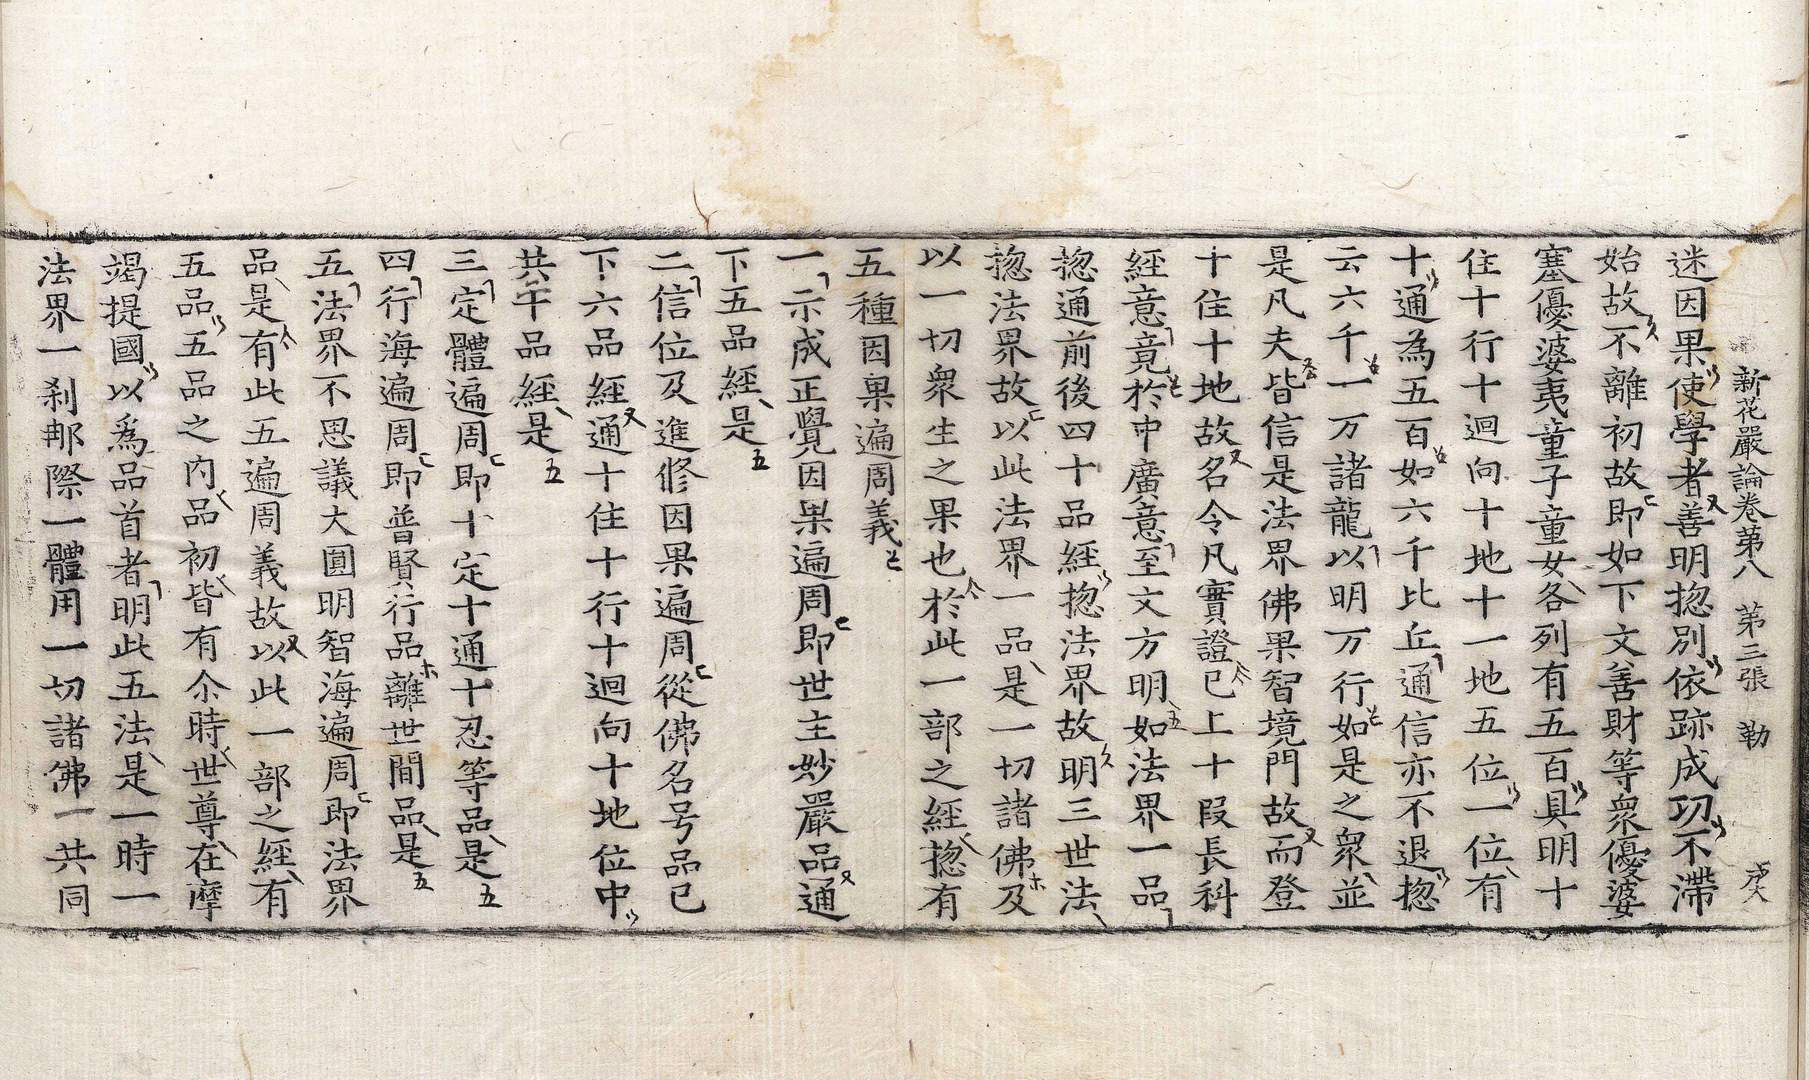 新花嚴論卷第八 第三張 勒
迷因果使學者善明捴別依跡成㓛不滯
始故不離初故即如下文善財等衆優婆
塞優婆夷童子童女各列有五百具明十
住十行十迴向十地十一地五位一位有
十通為五百如六千比丘通信亦不退捴
云六千一万諸龍以明万行如是之衆並
是凡夫皆信是法界佛果智境門故而登
十住十地故名令凡實證已上十段長科
經意竟於中廣意至文方明如法界一品
捴通前後四十品經捴法界故明三世法
捴法界故以此法界一品是一切諸佛及
以一切衆生之果也於此一部之經捴有
五種因果遍周義
一示成正覺因果遍周即世主妙嚴品通
下五品經是
二信位及進修因果遍周從佛名号品已
下六品經通十住十行十迴向十地位中
共廿品經是
三定體遍周即十定十通十忍等品是
四行海遍周即普賢行品離世間品是
五法界不思議大圓明智海遍周即法界
品是有此五遍周義故以此一部之經有
五品五品之內品初皆有尒時世尊在摩
竭提國以爲品首者明此五法是一時一
法界一刹那際一體用一切諸佛一共同